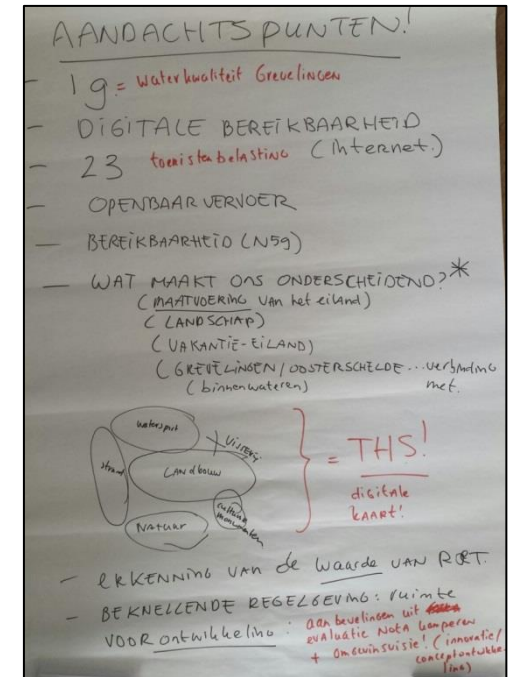 AANDACHTSPUNTEN!
- 1g = waterkwaliteit Grevelingen
- DIGITALE BEREIKBAARHEID
(internet.)
- 23 toeristenbelasting
- OPENBAAR VERVOER
- BEREIKBAARHEID (N59)
- WAT MAAKT ONS ONDERSCHEIDEND?*
(MAATVOERING van het eiland)
(LANDSCHAP)
(VAKANTIE-EILAND)
(GREVELINGEN/OOSTERSCHELDE... verbinding
(binnenwateren) met.
watersport
VISSERIJ
strand
LANdbouw
NAtuur
} = THS!
digitale
KAART!
- ERKENNING VAN de waarde VAN R&T.
- BEKNELLENDE REGELGEVING: ruimte
VOOR ontwikkeling : aanbevelingen uit
evaluatie NotA kamperen
+ omgevingsvisie! (innovatie/
conceptontwikke
ling)